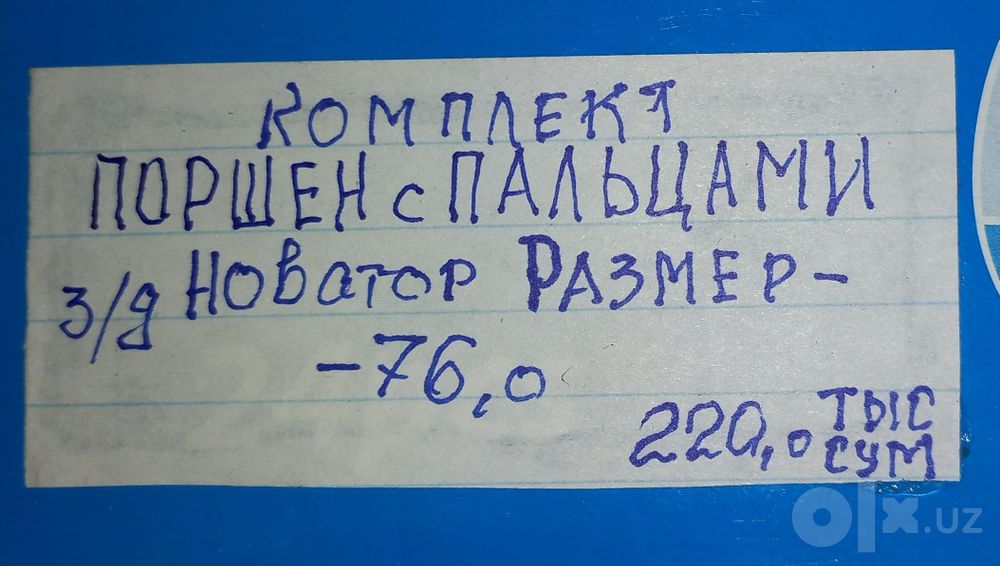 КОМПЛЕКТ
ПОРШЕН с ПАЛЬЦАМИ
з/д Новатор РАЗМЕР-
-76,0
220,0 ТЫС СУМ
olx.uz